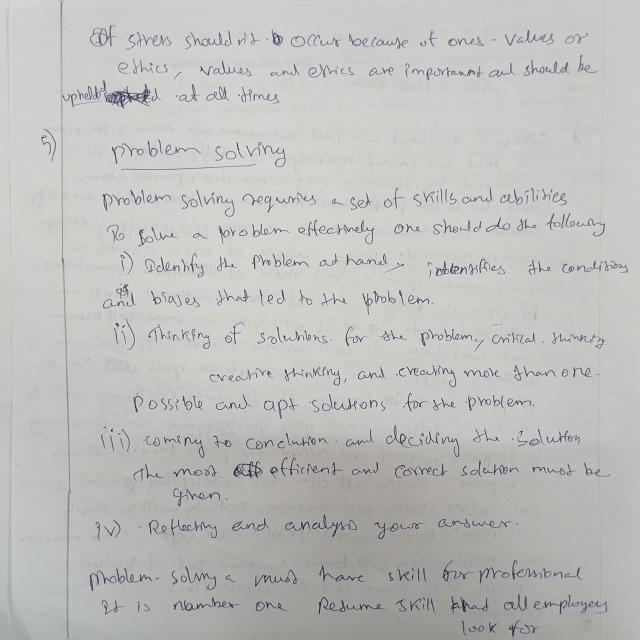 of stress shouldn't occur because of ones values or
ethics, values and ethics are importannt and should be
upheld at all times
5) problem solving
problem solving requries a set of skills and abilities
To solve a problem effectively one should do the following
i) Identify the problem at hand, identifies the conditions
and biases that led to the problem.
ii) Thinking of solutions for the problem, critical thinking
creative thinking, and creating more than one
possible and apt solutions for the problem.
iii) coming to conclution and deciding the solution
the most efficient and correct solution must be
given.
iv) Reflecting and analysis your answer.
problem-solving a must have skill for professional
It is number one Resume skill that all employers
look for